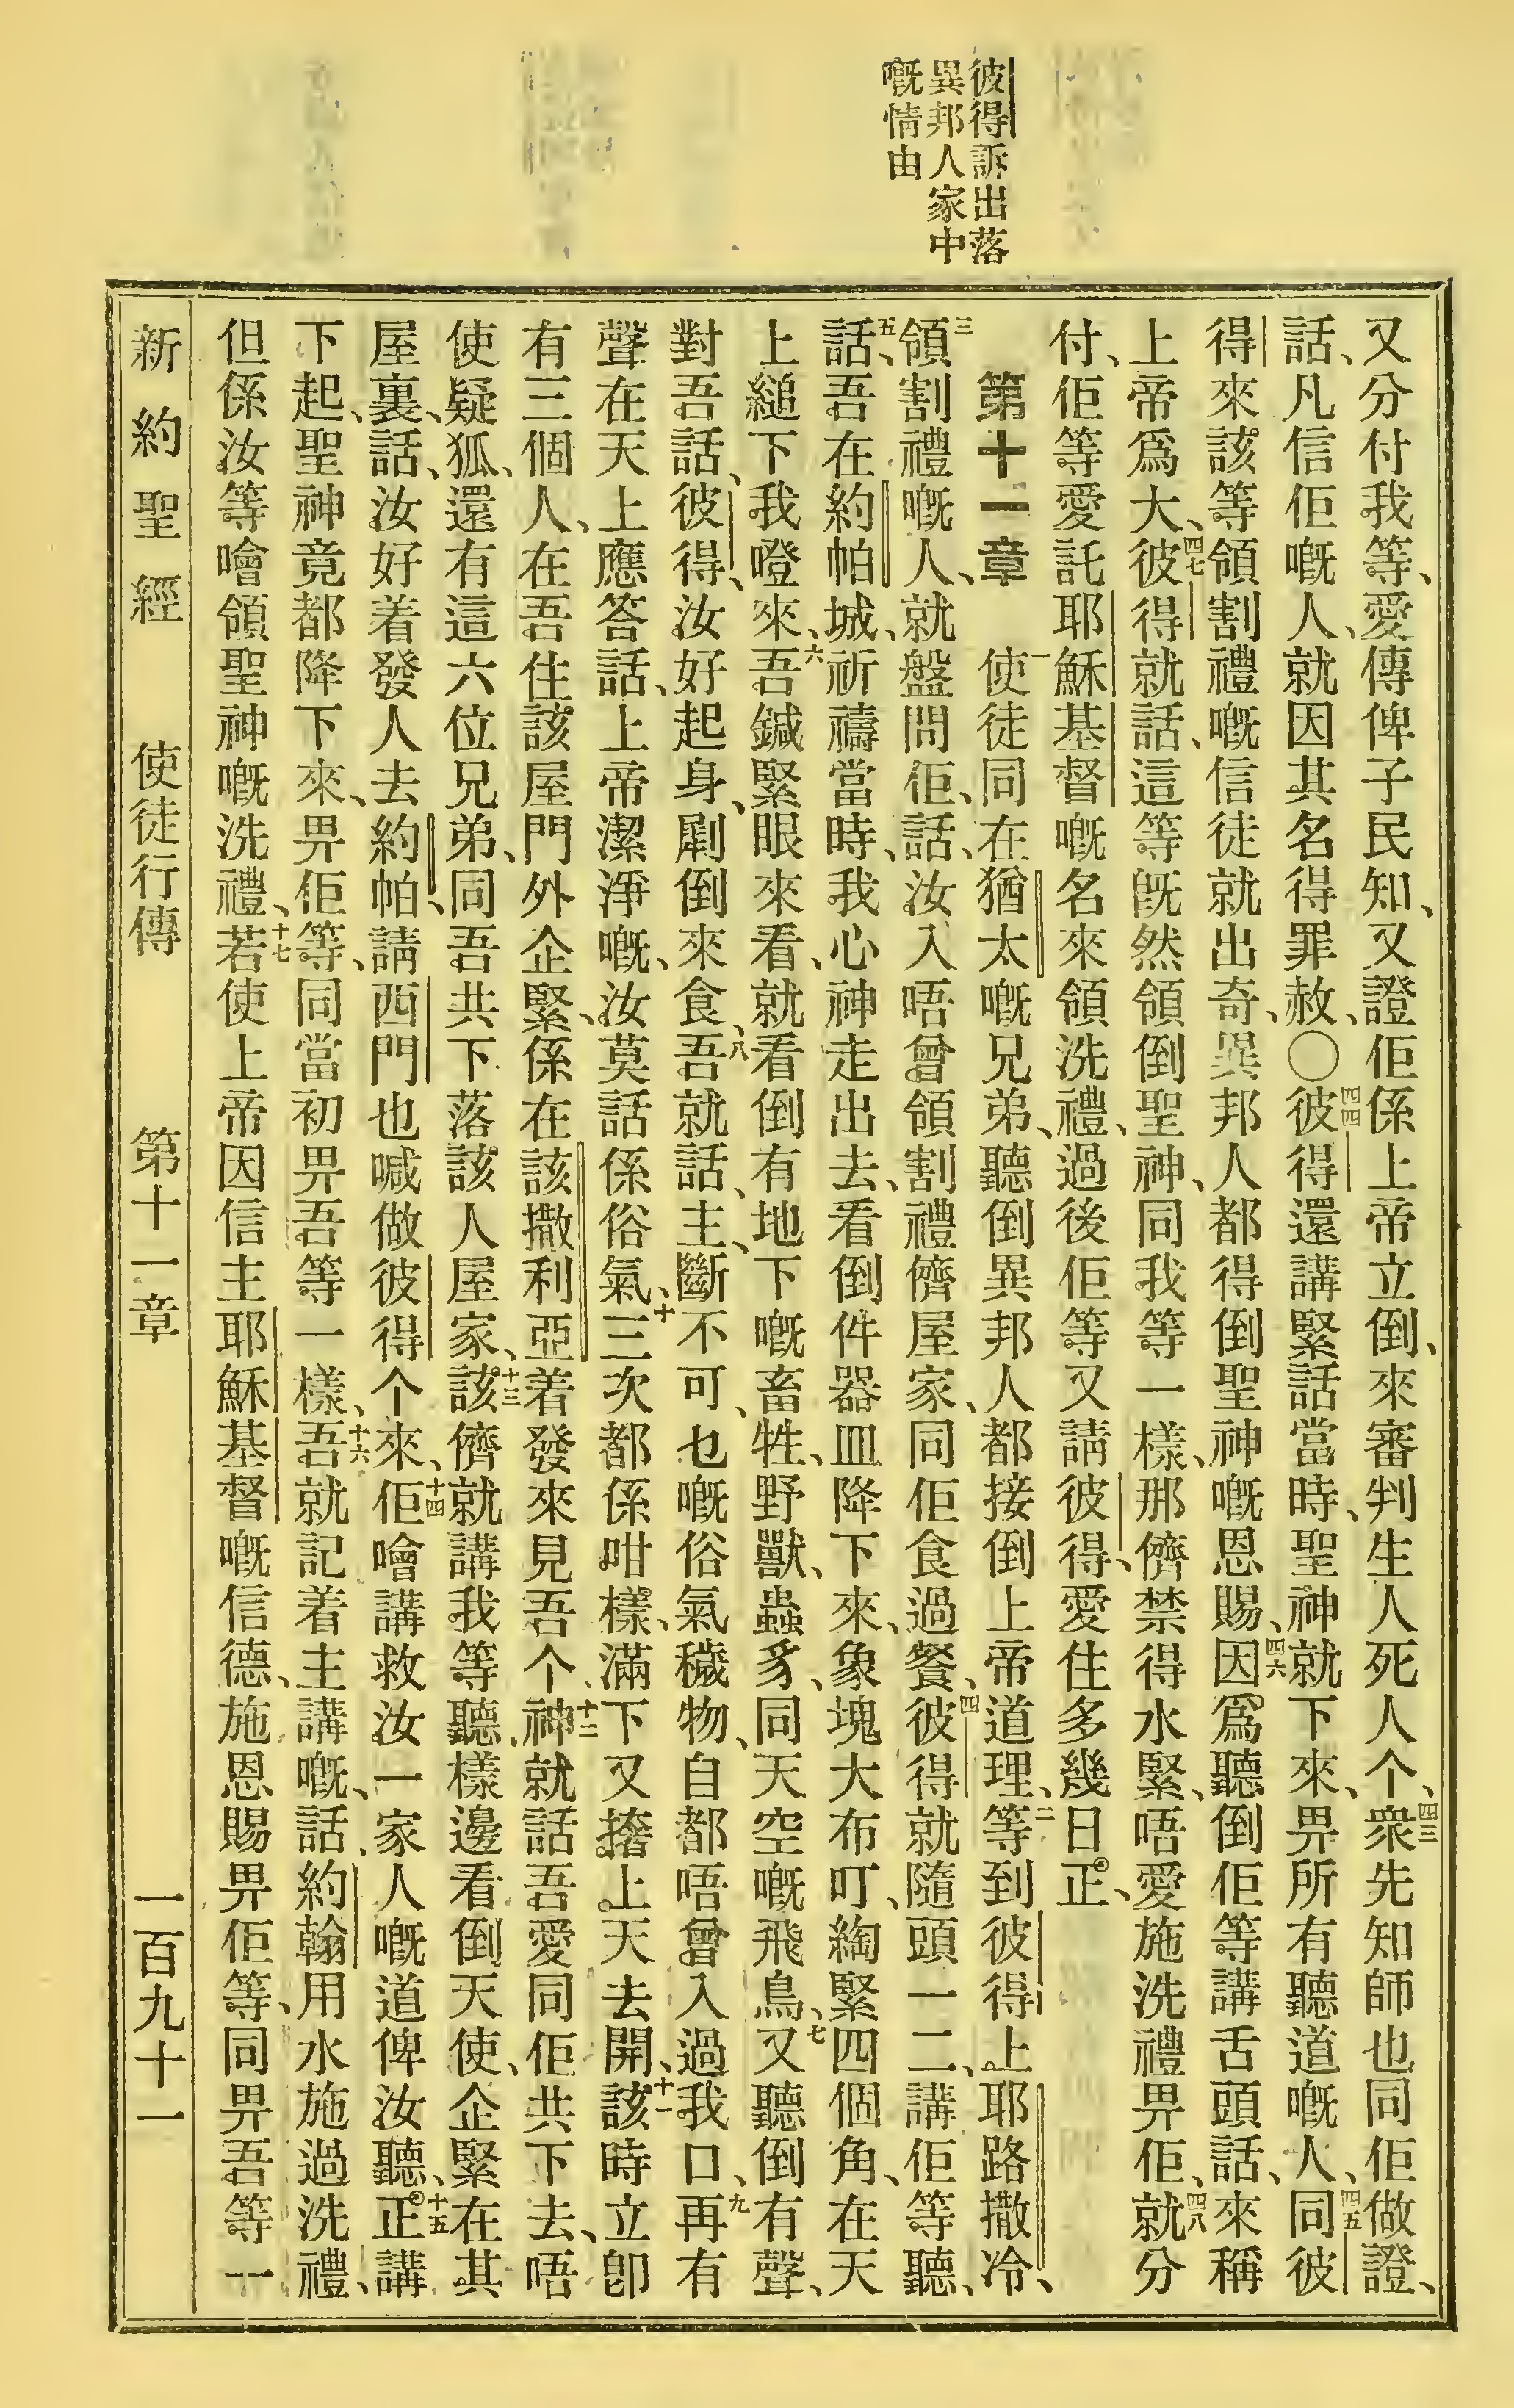 彼得訴出落
異邦人家中
嘅情由
又分付我等、愛傳俾子民知、又證佢係上帝立倒、來審判生人死人个、四三衆先知師也同佢做證、
話、凡信佢嘅人、就因其名得罪赦、〇四四彼得還講緊話當時、聖神就下來、畀所有聽道嘅人、四五同彼
得來該等領割禮嘅信徒就出奇、異邦人都得倒聖神嘅恩賜、四六因爲聽倒佢等講舌頭話、來稱
上帝爲大、四七彼得就話、這等既然領倒聖神、同我等一樣、那儕禁得水緊、唔愛施洗禮畀佢、四八就分
付、佢等愛託耶穌基督嘅名來領洗禮、過後佢等又請彼得、愛住多幾日正、
第十一章 一使徒同在猶太嘅兄弟、聽倒異邦人都接倒上帝道理、二等到彼得上耶路撒冷、
三領割禮嘅人、就盤問佢、話、汝入唔曾領割禮儕屋家、同佢食過餐、四彼得就隨頭一二、講佢等聽、
五話、吾在約帕城、祈禱當時、我心神走出去、看倒件器皿降下來、象塊大布叮、綯緊四個角、在天
上縋下我嶝來、六吾鍼緊眼來看、就看倒有地下嘅畜牲、野獸、蟲豸、同天空嘅飛鳥、七又聽倒有聲、
對吾話、彼得、汝好起身、劏倒來食、八吾就話、主、斷不可、乜嘅俗氣穢物、自都唔曾入過我口、九再有
聲在天上應答話、上帝潔淨嘅、汝莫話係俗氣、十三次都係咁樣、滿下又撍上天去開、十一該時立卽
有三個人、在吾住該屋門外企緊、係在該撒利亞着發來見吾个、十二神就話吾愛同佢共下去、唔
使疑狐、還有這六位兄弟、同吾共下落該人屋家、十三該儕就講我等聽、樣邊看倒天使、企緊在其
屋裏、話、汝好着發人去約帕、請西門也喊做彼得个來、十四佢噲講救汝一家人嘅道俾汝聽、十五正講
下起、聖神竟都降下來、畀佢等、同當初畀吾等一樣、十六吾就記着主講嘅、話、約翰用水施過洗禮、
但係汝等噲領聖神嘅洗禮、十七若使上帝因信主耶穌基督嘅信德、施恩賜畀佢等、同畀吾等一
新約聖經 使徒行傳 第十一章 一百九十一